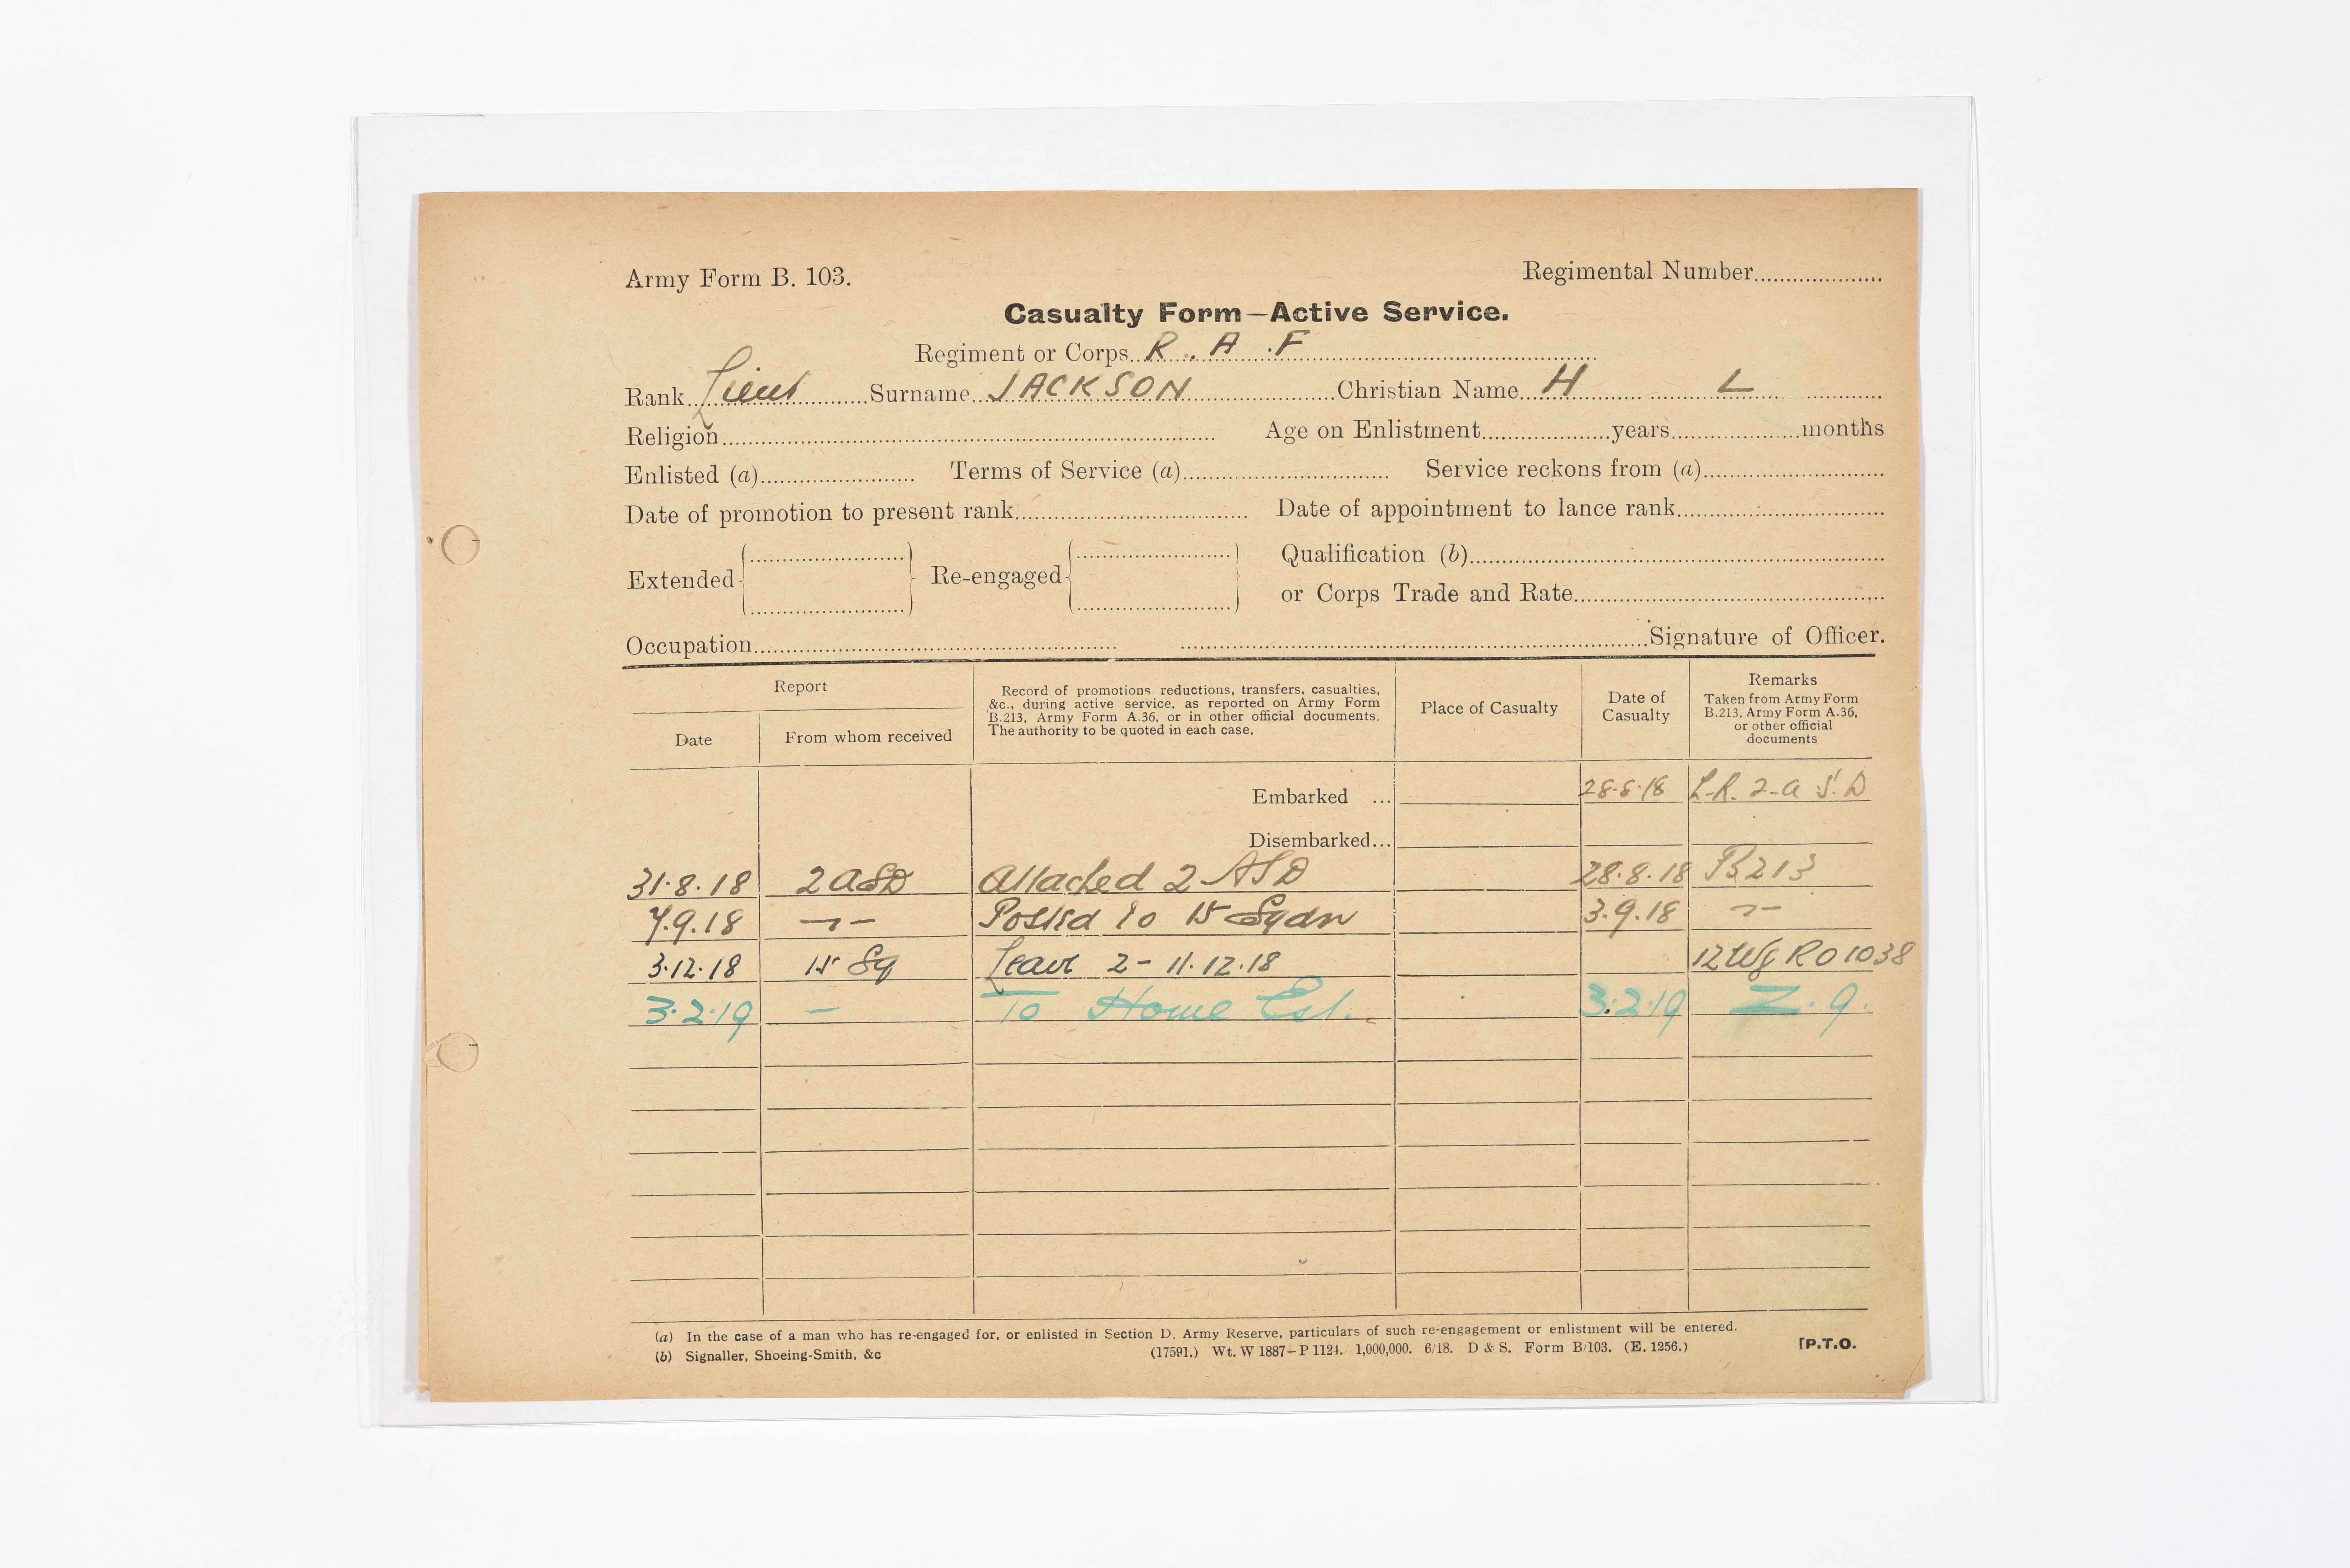 Army Form B. 103.
Regimental Number
Casualty Form—Active Service.
Regiment or Corps R. A. F
Rank Lieut Surname JACKSON Christian Name H L
Religion Age on Enlistment years months
Enlisted (a) Terms of Service (a) Service reckons from (a)
Date of promotion to present rank Date of appointment to lance rank
Extended Re-engaged Qualification (b)
or Corps Trade and Rate
Occupation Signature of Officer.
Report
Date
From whom received
Record of promotions, reductions, transfers, casualties,
&c., during active service, as reported on Army Form
B.213, Army Form A.36, or in other official documents.
The authority to be quoted in each case.
Place of Casualty
Date of
Casualty
Remarks
Taken from Army Form
B.213, Army Form A.36,
or other official
documents
Embarked ... 28.8.18 L.R. 2-A S.D
Disembarked...
31.8.18 2 ASD Attached 2 ASD 28.8.18 B213
7.9.18 Posted to 15 Sqdn 3.9.18
3.12.18 15 Sq Leave 2-11.12.18 12 Wg RO 1038
3.2.19 — To Home Est. 3.2.19 Z.9.
(a) In the case of a man who has re-engaged for, or enlisted in Section D, Army Reserve, particulars of such re-engagement or enlistment will be entered.
(b) Signaller, Shoeing-Smith, &c (17591.) Wt. W 1887—P 1124. 1,000,000. 6/18. D & S. Form B/103. (E. 1256.) [P.T.O.